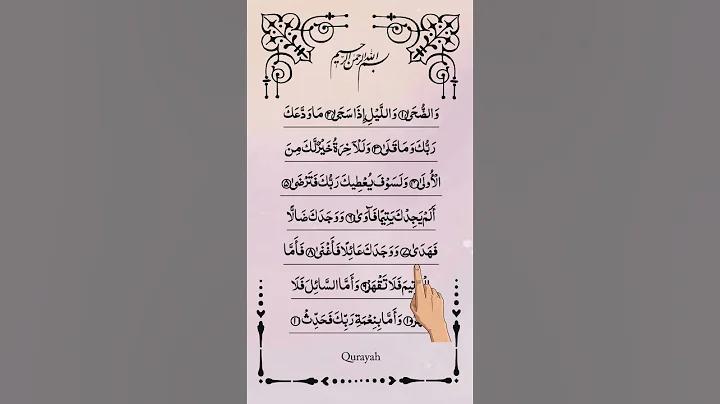 بسم الله الرحمن الرحيم
وَالضُّحَىٰ ١ وَاللَّيْلِ إِذَا سَجَىٰ ٢ مَا وَدَّعَكَ
رَبُّكَ وَمَا قَلَىٰ ٣ وَلَلْآخِرَةُ خَيْرٌ لَّكَ مِنَ
الْأُولَىٰ ٤ وَلَسَوْفَ يُعْطِيكَ رَبُّكَ فَتَرْضَىٰ ٥
أَلَمْ يَجِدْكَ يَتِيمًا فَآوَىٰ ٦ وَوَجَدَكَ ضَالًّا
فَهَدَىٰ ٧ وَوَجَدَكَ عَائِلًا فَأَغْنَىٰ ٨ فَأَمَّا
فَلَا تَقْهَرْ ٩ وَأَمَّا السَّائِلَ فَلَا
١٠ وَأَمَّا بِنِعْمَةِ رَبِّكَ فَحَدِّثْ
Qurayah